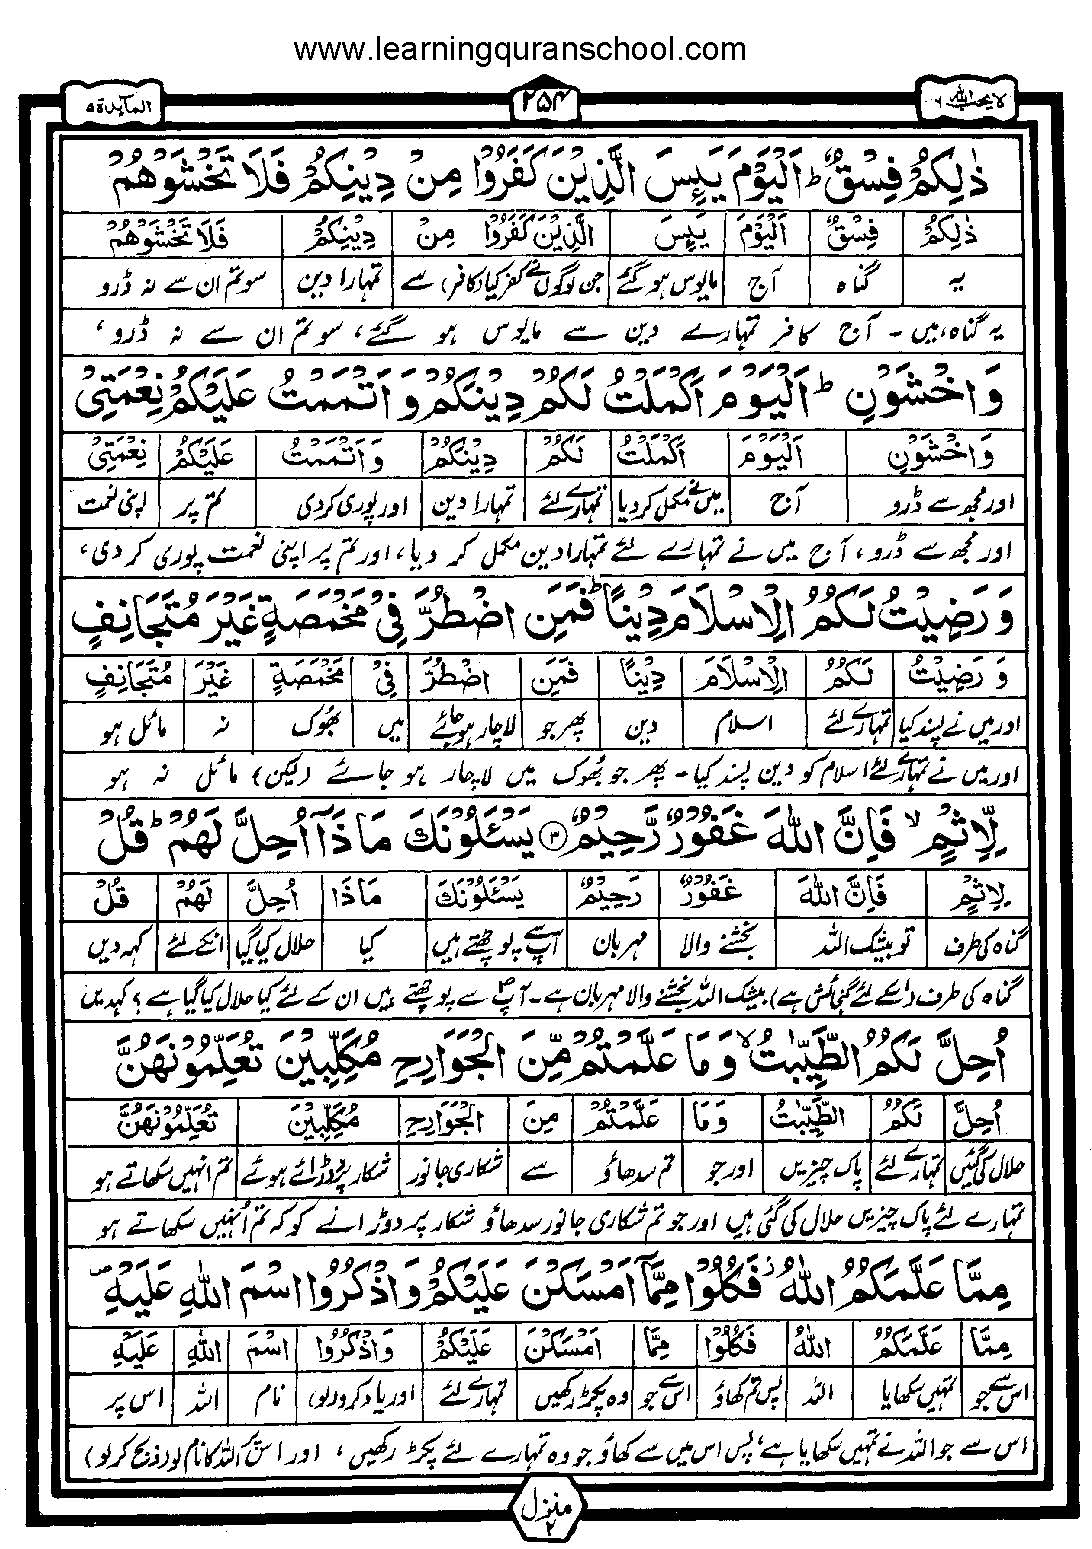 www.learningquranschool.com
لا يحب الله ٦
٢٥٤
المآبدة ٥
ذٰلِكُمْ فِسْقٌ ؕ اَلْيَوْمَ يَىِٕسَ الَّذِيْنَ كَفَرُوْا مِنْ دِيْنِكُمْ فَلَا تَخْشَوْهُمْ
ذٰلِكُمْ فِسْقٌ اَلْيَوْمَ يَىِٕسَ الَّذِيْنَ كَفَرُوْا مِنْ دِيْنِكُمْ فَلَا تَخْشَوْهُمْ
یہ گناہ آج مایوس ہوگئے جن لوگوں نے کفر کیا (کافر) سے تمہارا دین سو تم ان سے نہ ڈرو
یہ گناہ ہیں - آج کافر تمہارے دین سے مایوس ہو گئے، سو تم ان سے نہ ڈرو،
وَاخْشَوْنِ ؕ اَلْيَوْمَ اَكْمَلْتُ لَكُمْ دِيْنَكُمْ وَاَتْمَمْتُ عَلَيْكُمْ نِعْمَتِيْ
وَاخْشَوْنِ اَلْيَوْمَ اَكْمَلْتُ لَكُمْ دِيْنَكُمْ وَاَتْمَمْتُ عَلَيْكُمْ نِعْمَتِيْ
اور مجھ سے ڈرو آج میں نے مکمل کر دیا تمہارے لئے تمہارا دین اور پوری کردی تم پر اپنی نعمت
اور مجھ سے ڈرو، آج میں نے تمہارے لئے تمہارا دین مکمل کر دیا، اور تم پر اپنی نعمت پوری کر دی،
وَرَضِيْتُ لَكُمُ الْاِسْلَامَ دِيْنًا ؕ فَمَنِ اضْطُرَّ فِيْ مَخْمَصَةٍ غَيْرَ مُتَجَانِفٍ
وَرَضِيْتُ لَكُمُ الْاِسْلَامَ دِيْنًا فَمَنِ اضْطُرَّ فِيْ مَخْمَصَةٍ غَيْرَ مُتَجَانِفٍ
اور میں نے پسند کیا تمہارے لئے اسلام دین پھر جو لاچار ہوجائے میں بھوک نہ مائل ہو
اور میں نے تمہارے لئے اسلام کو دین پسند کیا - پھر جو بھوک میں لاچار ہو جائے (لیکن) مائل نہ ہو
لِّاِثْمٍ ۙ فَاِنَّ اللّٰهَ غَفُوْرٌ رَّحِيْمٌ ﴿٣﴾ يَسْـَٔلُوْنَكَ مَاذَاۤ اُحِلَّ لَهُمْ ؕ قُلْ
لِاِثْمٍ فَاِنَّ اللّٰهَ غَفُوْرٌ رَحِيْمٌ يَسْـَٔلُوْنَكَ مَاذَا اُحِلَّ لَهُمْ قُلْ
گناہ کی طرف تو بیشک اللہ بخشنے والا مہربان آپ سے پوچھتے ہیں کیا حلال کیا گیا انکے لئے کہہ دیں
گناہ کی طرف (اسکے لئے گنجائش ہے) بیشک اللہ بخشنے والا مہربان ہے - آپؐ سے پوچھتے ہیں ان کے لئے کیا حلال کیا گیا ہے؟ کہدیں
اُحِلَّ لَكُمُ الطَّيِّبٰتُ ۙ وَمَا عَلَّمْتُمْ مِّنَ الْجَوَارِحِ مُكَلِّبِيْنَ تُعَلِّمُوْنَهُنَّ
اُحِلَّ لَكُمُ الطَّيِّبٰتُ وَمَا عَلَّمْتُمْ مِنَ الْجَوَارِحِ مُكَلِّبِيْنَ تُعَلِّمُوْنَهُنَّ
حلال کی گئیں تمہارے لئے پاک چیزیں اور جو تم سدھاؤ سے شکاری جانور شکار پر دوڑائے ہوئے تم انہیں سکھاتے ہو
تمہارے لئے پاک چیزیں حلال کی گئی ہیں اور جو تم شکاری جانور سدھاؤ شکار پر دوڑانے کو کہ تم اُنہیں سکھاتے ہو
مِمَّا عَلَّمَكُمُ اللّٰهُ ؗ فَكُلُوْا مِمَّاۤ اَمْسَكْنَ عَلَيْكُمْ وَاذْكُرُوا اسْمَ اللّٰهِ عَلَيْهِ ۪
مِمَّا عَلَّمَكُمُ اللّٰهُ فَكُلُوْا مِمَّا اَمْسَكْنَ عَلَيْكُمْ وَاذْكُرُوا اسْمَ اللّٰهِ عَلَيْهِ
اس سے جو تمہیں سکھایا اللہ پس تم کھاؤ اس سے جو وہ پکڑ رکھیں تمہارے لئے اور یاد کرو (لو) نام اللہ اس پر
اس سے جو اللہ نے تمہیں سکھایا ہے، پس اس میں سے کھاؤ جو وہ تمہارے لئے پکڑ رکھیں، اور اس پر اللہ کا نام لو (ذبح کرلو)
منزل ٢